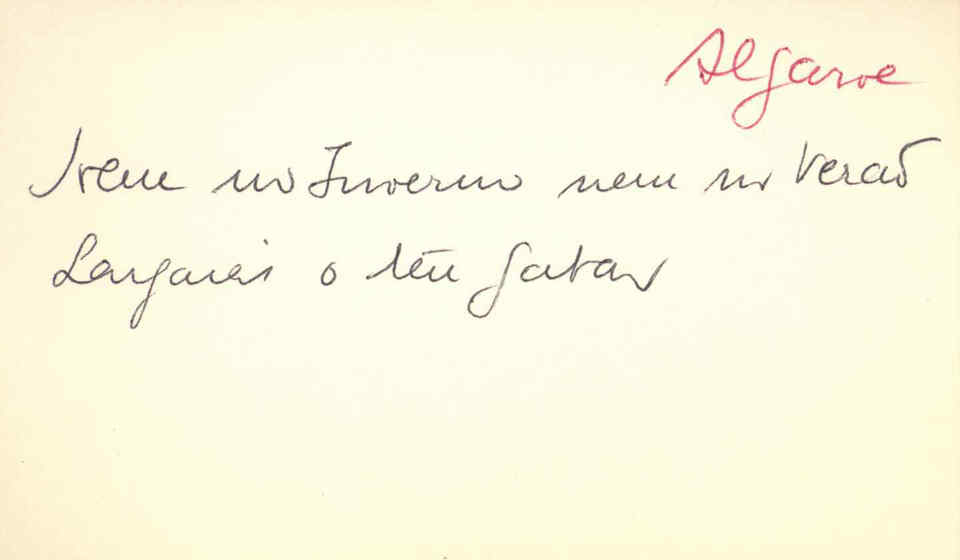 Algarve
Nem no Inverno nem no Verão
Largarás o teu gabão